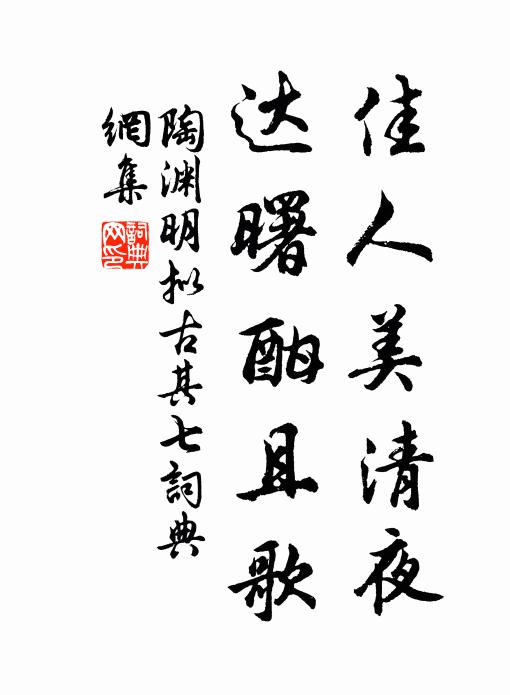 佳人美清夜
达曙酣且歌
陶渊明拟古其七詞典
網集
詞典
网印